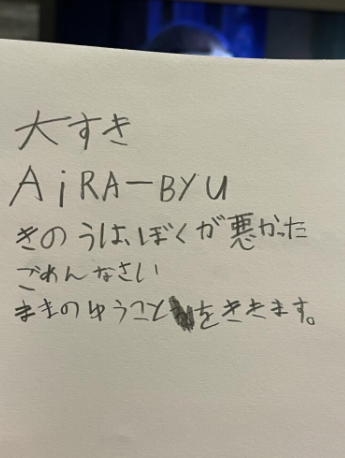 大すき
AiRA-BYU
きのうは、ぼくが悪かった
ごめんなさい
ままのゆうことをききます。